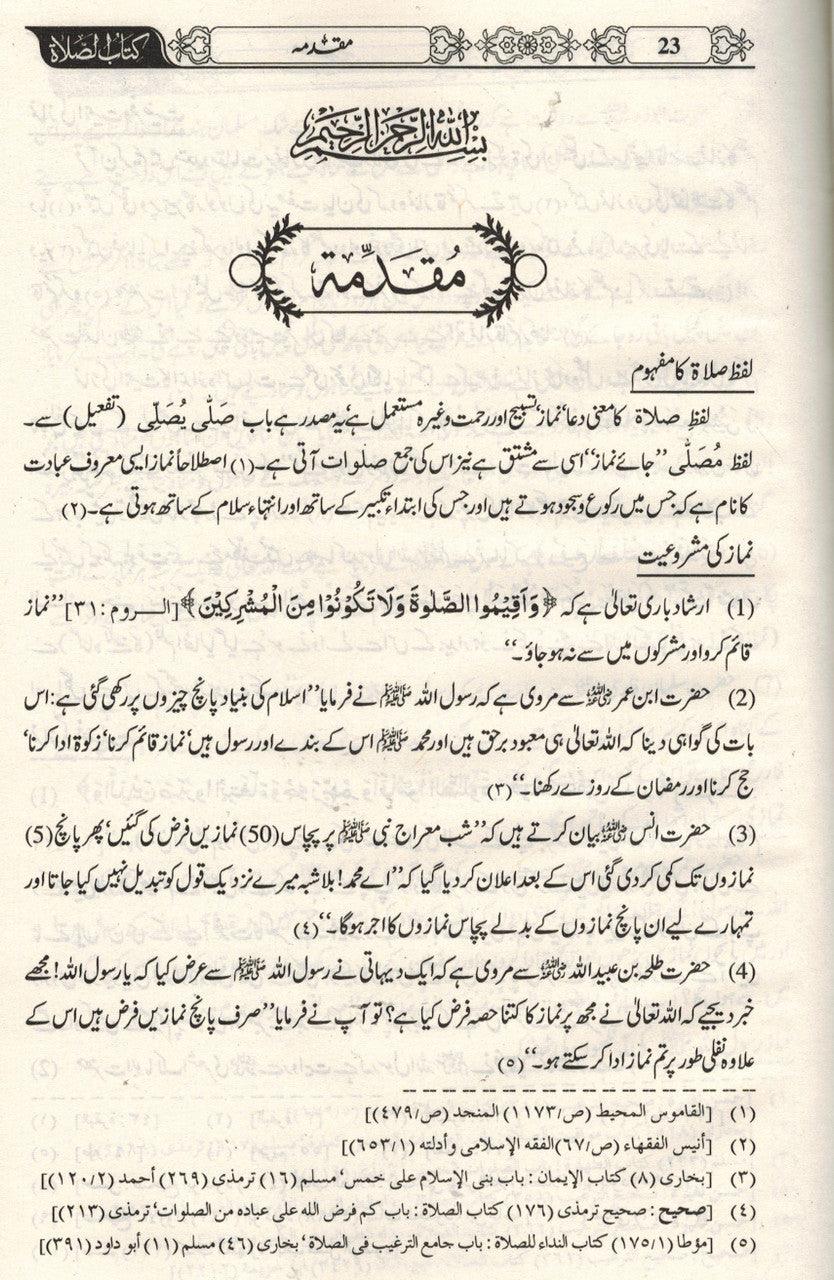 كتاب الصلاة مقدمه 23
بسم الله الرحمن الرحيم
مُقَدِّمة
لفظ صلاۃ کا مفہوم
لفظِ صلاۃ کا معنی دعا‘ نماز‘ تسبیح اور رحمت وغیرہ مستعمل ہے‘ یہ مصدر ہے باب صَلّٰی یُصَلِّی (تفعیل) سے۔
لفظ مُصَلّٰی ’’جائے نماز‘‘ اسی سے مشتق ہے نیز اس کی جمع صلوات آتی ہے۔(۱) اصطلاحاً نماز ایسی معروف عبادت
کا نام ہے کہ جس میں رکوع و سجود ہوتے ہیں اور جس کی ابتداء تکبیر کے ساتھ اور انتہاء سلام کے ساتھ ہوتی ہے۔(۲)
نماز کی مشروعیت
(1) ارشاد باری تعالیٰ ہے کہ ﴿وَاَقِيْمُوا الصَّلٰوةَ وَلَا تَكُوْنُوْا مِنَ الْمُشْرِكِيْنَ﴾ [الـــروم:۳۱] ’’نماز
قائم کرو اور مشرکوں میں سے نہ ہو جاؤ۔‘‘
(2) حضرت ابن عمر رضی اللہ عنہ سے مروی ہے کہ رسول اللہ ﷺ نے فرمایا ’’اسلام کی بنیاد پانچ چیزوں پر رکھی گئی ہے: اس
بات کی گواہی دینا کہ اللہ تعالیٰ ہی معبود برحق ہیں اور محمد ﷺ اس کے بندے اور رسول ہیں‘ نماز قائم کرنا‘ زکوۃ ادا کرنا‘
حج کرنا اور رمضان کے روزے رکھنا۔‘‘(۳)
(3) حضرت انس رضی اللہ عنہ بیان کرتے ہیں کہ ’’شب معراج نبی ﷺ پر پچاس (50) نمازیں فرض کی گئیں‘ پھر پانچ (5)
نمازوں تک کمی کر دی گئی اس کے بعد اعلان کر دیا گیا کہ ’’اے محمد! بلاشبہ میرے نزدیک قول کو تبدیل نہیں کیا جاتا اور
تمہارے لیے ان پانچ نمازوں کے بدلے پچاس نمازوں کا اجر ہوگا۔‘‘(۴)
(4) حضرت طلحہ بن عبید اللہ رضی اللہ عنہ سے مروی ہے کہ ایک دیہاتی نے رسول اللہ ﷺ سے عرض کیا کہ یا رسول اللہ! مجھے
خبر دیجیے کہ اللہ تعالیٰ نے مجھ پر نماز کا کتنا حصہ فرض کیا ہے؟ تو آپ نے فرمایا ’’صرف پانچ نمازیں فرض ہیں اس کے
علاوہ نفلی طور پر تم نماز ادا کر سکتے ہو۔‘‘(۵)
(۱) [القاموس المحيط (ص/۱۱۷۳) المنجد (ص/۴۷۹)]
(۲) [أنيس الفقهاء (ص/۶۷) الفقه الإسلامى وأدلته (۶۵۳/۱)]
(۳) [بخارى (۸) كتاب الإيمان : باب بنى الإسلام على خمس‘ مسلم (۱۶) ترمذى (۲۶۹) أحمد (۱۲۰/۲)]
(۴) [صحيح : صحيح ترمذى (۱۷۶) كتاب الصلاة : باب كم فرض الله على عباده من الصلوات‘ ترمذى (۲۱۳)]
(۵) [مؤطا (۱۷۵/۱) كتاب النداء للصلاة : باب جامع الترغيب فى الصلاة‘ بخارى (۴۶) مسلم (۱۱) أبو داود (۳۹۱)]